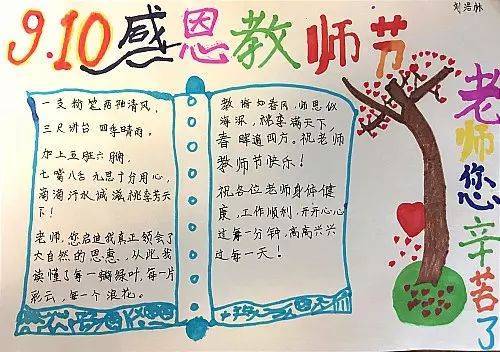 刘浩林
9.10感恩教师节
一支粉笔两袖清风,
三尺讲台 四季晴雨,
加上五脏六腑,
七嘴八舌 九思十分用心,
滴滴汗水诚滋桃李芳天
下!
老师,您启迪我真正领会了
大自然的恩惠,从此我
读懂了每一瓣绿叶,每一片
彩云,每一个浪花。
教诲如春风,师恩似
海深,桃李满天下,
春晖遍四方。祝老师
教师节快乐!
祝各位老师身体健
康,工作顺利,开开心心
过每一分钟,高高兴兴
过每一天!
老师您辛苦了